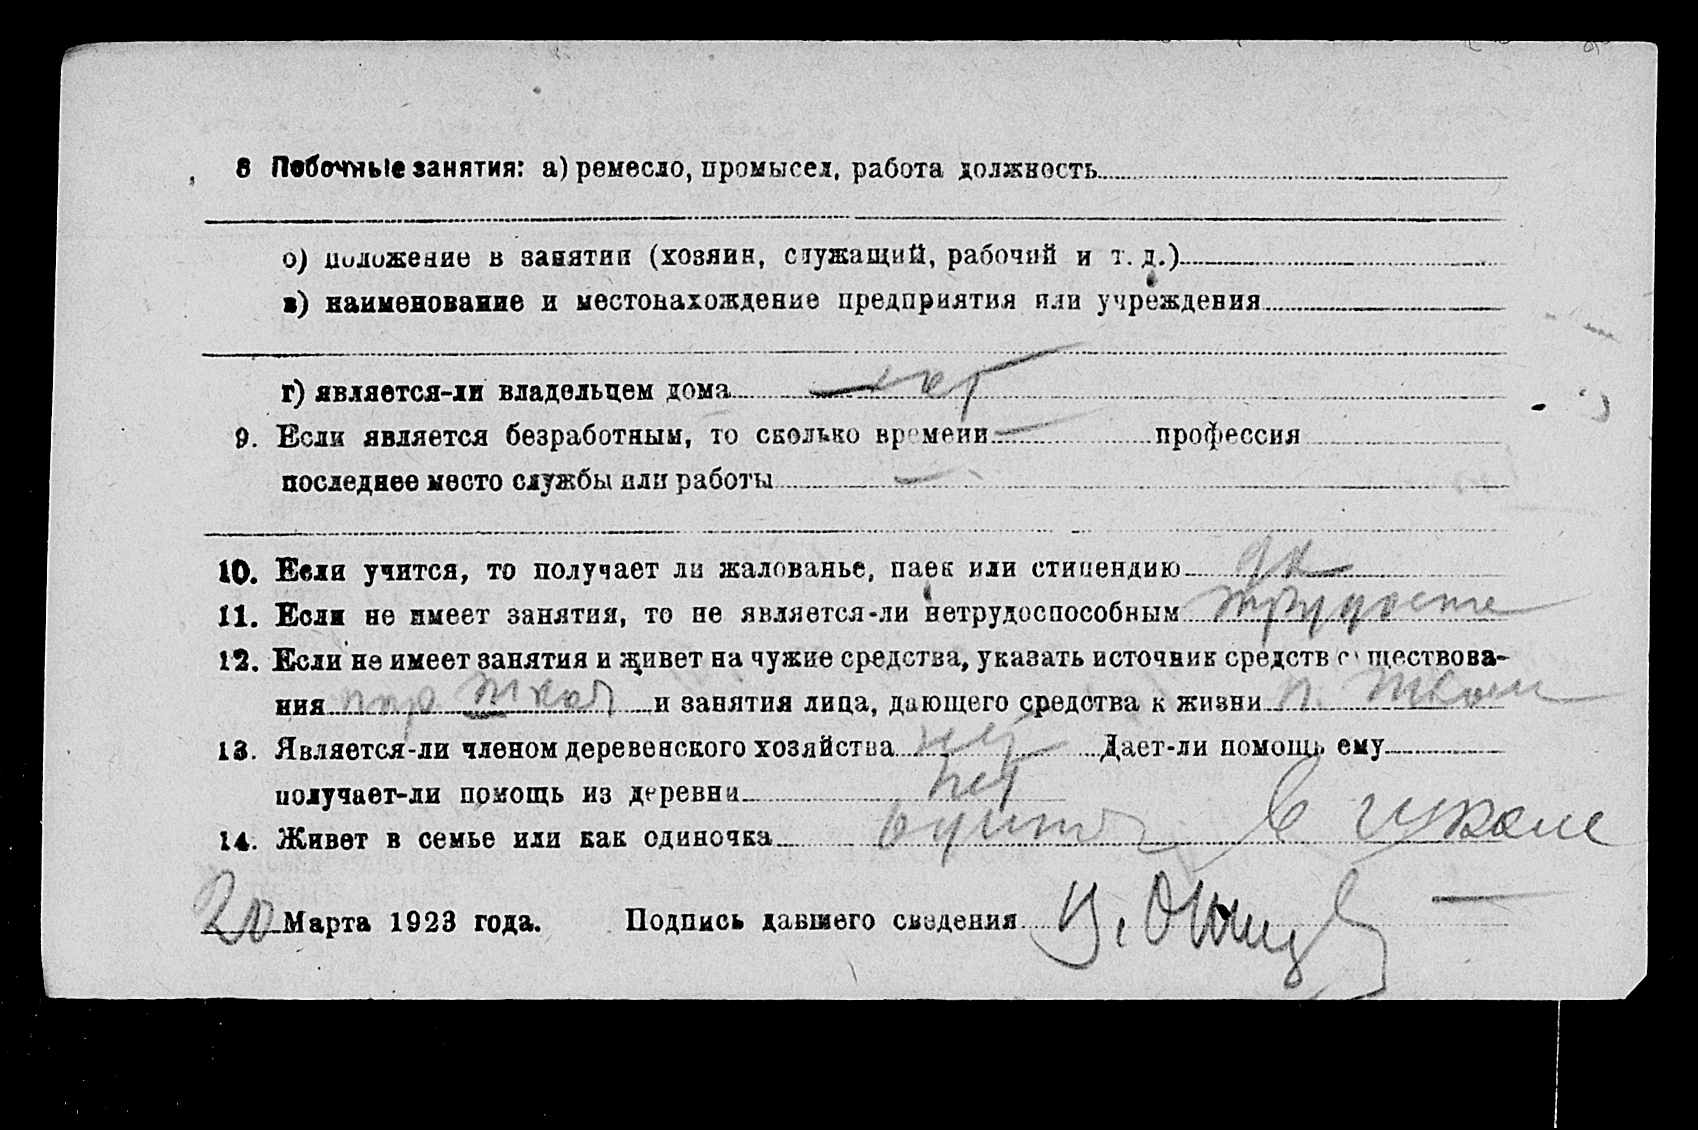 8 Побочные занятия: а) ремесло, промысел, работа должность
б) положение в занятии (хозяин, служащий, рабочий и т. д.)
в) наименование и местонахождение предприятия или учреждения
г) является-ли владельцем дома нет
9. Если является безработным, то сколько времени — профессия
последнее место службы или работы —
10. Если учится, то получает ли жалованье, паек или стипендию да
11. Если не имеет занятия, то не является-ли нетрудоспособным
12. Если не имеет занятия и живет на чужие средства, указать источник средств существова-
ния и занятия лица, дающего средства к жизни
13. Является-ли членом деревенского хозяйства нет Дает-ли помощь ему
получает-ли помощь из деревни нет
14. Живет в семье или как одиночка в школе
20 Марта 1923 года. Подпись давшего сведения